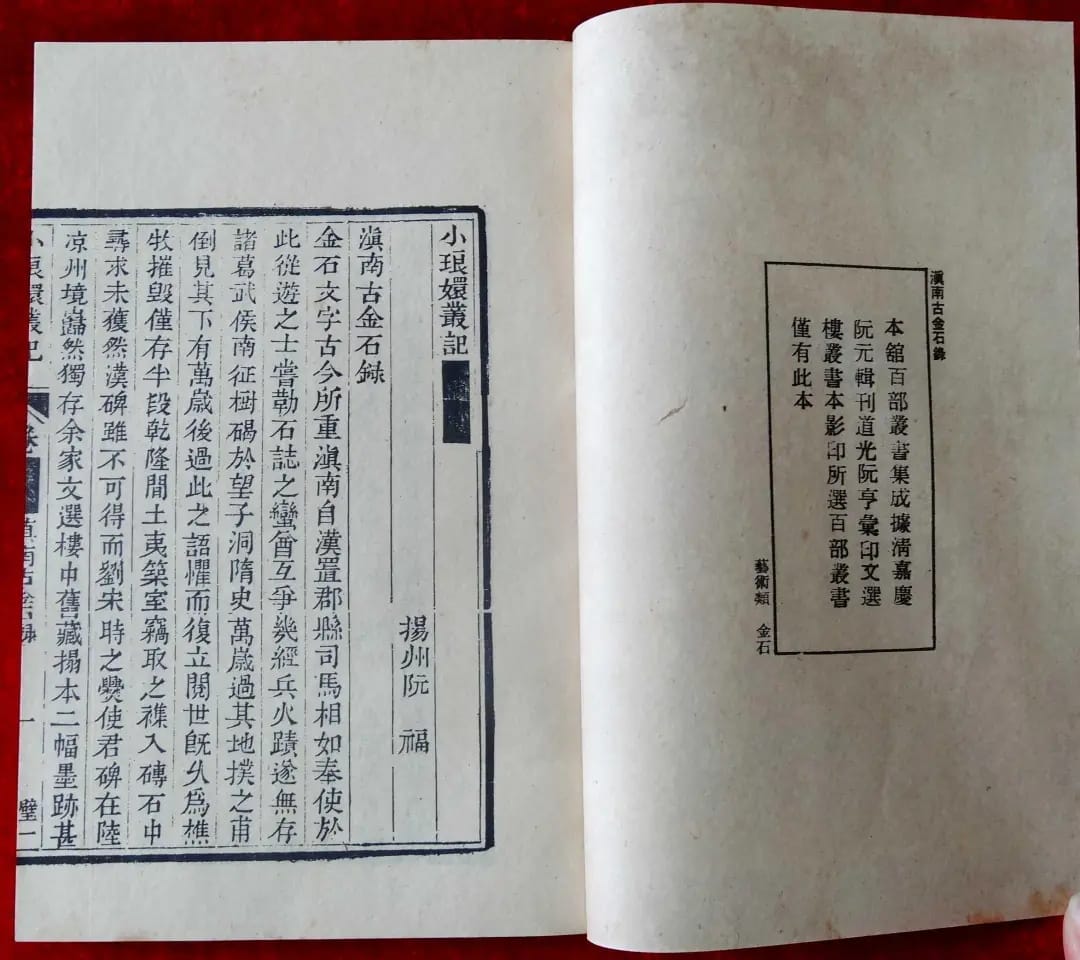 滇南古金石錄
本舘百部叢書集成據清嘉慶
阮元輯刊道光阮亨彙印文選
樓叢書本影印所選百部叢書
僅有此本
藝術類 金石
小琅嬛叢記
揚州阮 福
滇南古金石録
金石文字古今所重滇南自漢置郡縣司馬相如奉使於
此從遊之士嘗勒石誌之蠻酋互爭幾經兵火蹟遂無存
諸葛武侯南征樹碣於望子洞隋史萬歲過其地撲之甫
倒見其下有萬歲後過此之語懼而復立閱世旣乆爲樵
牧摧毀僅存半段乾隆間土夷築室竊取之襍入磚石中
尋求未獲然漢碑雖不可得而劉宋時之爨使君碑在陸
凉州境巋然獨存余家文選樓中舊藏搨本二幅墨跡甚
小琅嬛叢記
滇南古金石録
一
璧一